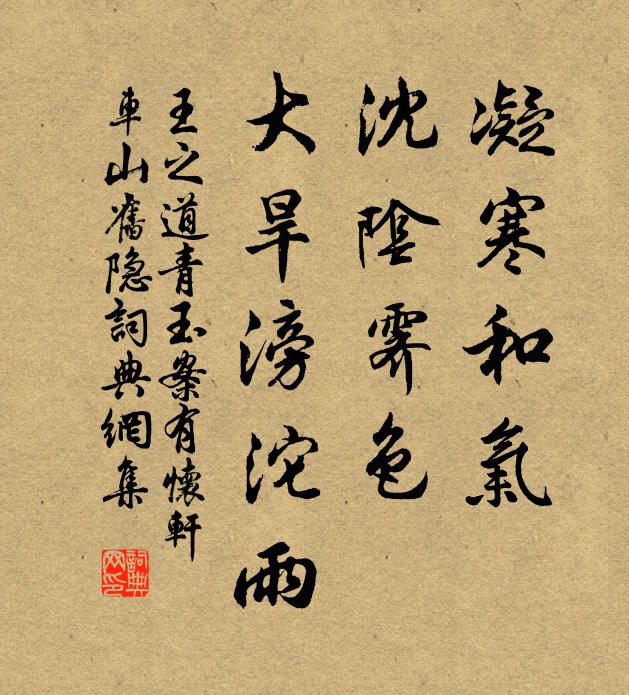 凝寒和氣
沈陰霽色
大旱滂沱雨
王之道青玉案有懷軒
車山舊隐詞典網集
詞典网印